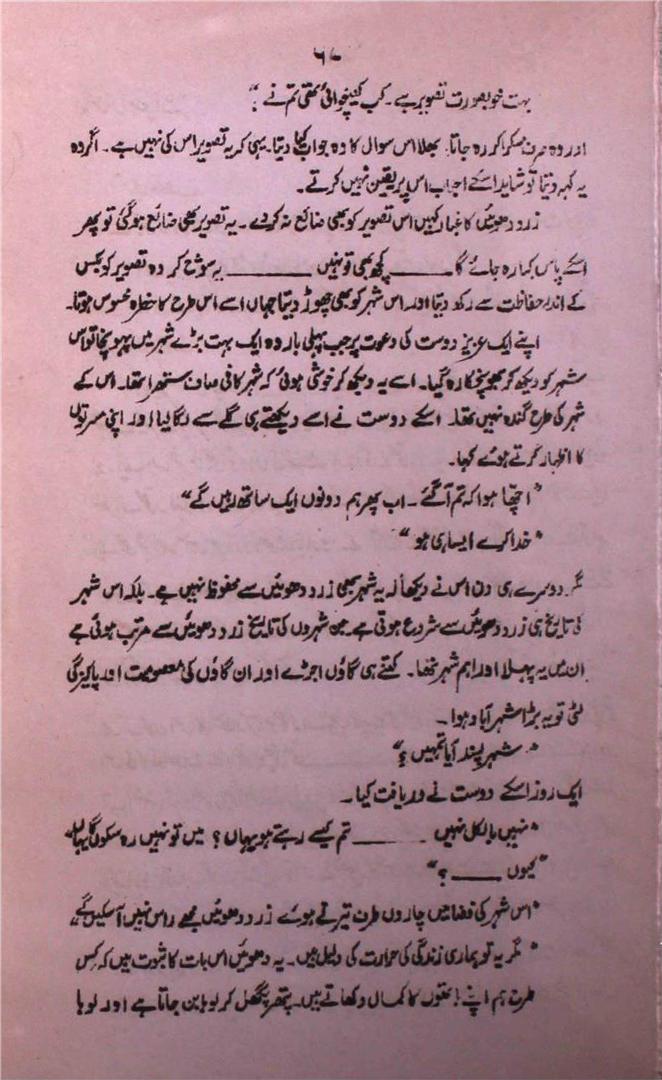 ۶۷
بہت خوبصورت تصویر ہے۔ کب کھینچوائی تھی تم نے ؟"
اور وہ صرف مسکرا کر رہ جاتا۔ بھلا اس سوال کا وہ جواب کیا دیتا۔ یہی کہ یہ تصویر اس کی نہیں ہے۔ اگر وہ
یہ کہہ دیتا تو شاید اسکے احباب اس پر یقین نہیں کرتے۔
زرد دھوئیں کا غبار کہیں اس تصویر کو بھی ضائع نہ کر دے۔ یہ تصویر بھی ضائع ہو گئی تو پھر
اسکے پاس کیا رہ جائے گا ـــــــ کچھ بھی تو نہیں ـــــــ یہ سوچ کر وہ تصویر کو بکس
کے اندر حفاظت سے رکھ دیتا اور اس شہر کو بھی چھوڑ دیتا جہاں اسے اس طرح کا خطرہ محسوس ہوتا۔
اپنے ایک عزیز دوست کی دعوت پر جب پہلی بار وہ ایک بہت بڑے شہر میں پہونچا تو اس
شہر کو دیکھ کر بھونچکا رہ گیا۔ اسے یہ دیکھ کر خوشی ہوئی کہ شہر کافی صاف ستھرا تھا۔ اس کے
شہر کی طرح گندہ نہیں تھا۔ اسکے دوست نے اسے دیکھتے ہی گلے سے لگا لیا اور اپنی مسرتوں
کا اظہار کرتے ہوئے کہا۔
"اچھا ہوا کہ تم آ گئے۔ اب پھر ہم دونوں ایک ساتھ رہیں گے"
"خدا کرے ایسا ہی ہو"
مگر دوسرے ہی دن اس نے دیکھا کہ یہ شہر بھی زرد دھوئیں سے محفوظ نہیں ہے۔ بلکہ اس شہر
کی تاریخ ہی زرد دھوئیں سے شروع ہوتی ہے۔ جن شہروں کی تاریخ زرد دھوئیں سے مرتب ہوئی ہے
ان میں یہ پہلا اور اہم شہر تھا۔ کتنے ہی گاؤں اجڑے اور ان گاؤں کی معصومیت اور پاکیزگی
لٹی تو یہ بڑا شہر آباد ہوا۔
"شہر پسند آیا تمہیں ؟"
ایک روز اسکے دوست نے دریافت کیا۔
"نہیں بالکل نہیں ـــــــ تم کیسے رہتے ہو یہاں ؟ میں تو نہیں رہ سکوں گا یہاں"
"کیوں ـــــــ ؟"
"اس شہر کی فضا میں چاروں طرف تیرتے ہوئے زرد دھوئیں مجھے راس نہیں آ سکیں گے"
"مگر یہ تو ہماری زندگی کی حرارت کی دلیل ہیں۔ یہ دھوئیں اس بات کا ثبوت ہیں کہ کس
طرح ہم اپنے ہاتھوں کا کمال دکھاتے ہیں۔ پتھر پگھل کر لوہا بن جاتا ہے اور لوہا